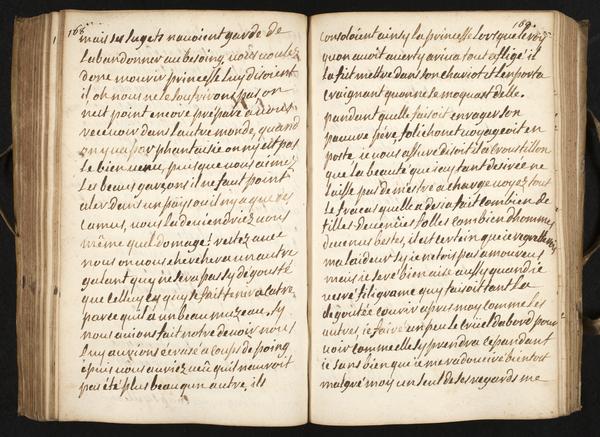 168
mais ses sujets navoient garde de
labandonner au besoing, vous voulez
donc mourir princesse luy disoient
il, oh nous ne le soufrirons pas on
nest point encore préparé a vous
recevoir dans lautre monde, quand
on y va par phantaisie on ny est pas
le bien venu, puis que vous aimez
les beaux garzons il ne faut point
aler dans un païs ou il ny a que des
ames, vous la deviendriez vous
même quel domage! restez avec
nous on vous cherchera un autre
galant quy ne sera pas sy dégousté
que celluy cy quy se fait tenir a
parce quil a un beau muzeau. sy
nous avions fait notre devoir nous
luy aurions écrasé a coups de poing
épuis vous auriez veu quil nauroit
pas été plus beau qun autre, ils
169
consoloient ainsy la princesse lors que le roy
quon avoit averty ariva tout afligé il
la fit mettre dans son chariot et lenporta
craignant quon ne se moquast delle.
pandant quelle faisoit enrager son
pauvre père, folichon et voyageoit en
poste ie vous assure disoit il a croustillon
que la beauté que iay tant désirée ne
laisse pas de mestre a charge voyez tout
le fracas quelle a désia fait combien de
filles devenües folles combien dhommes
devenus bestes, il est certain que ie regrette
ma laideur sy ie nétois pas amoureux
mais ie seré bien aise aussy quand ie
veré filigrame quy faisoit tant la
dégoutée courir apres moy comme les
autres, ie feré un peu le crüel dabord pour
voir comme elle sy prendra cepandant
ie sans bien que ie me radouciré bientost
malgré moy un seul de ses regards me